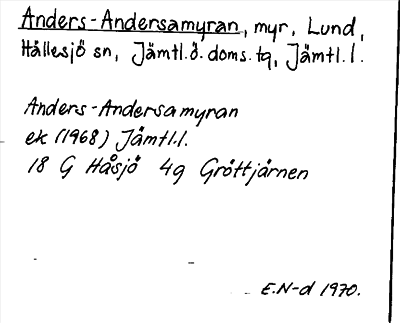 Anders-Andersamyran, myr, Lund,
Hällesjö sn, Jämtl.ö.doms.tg, Jämtl.l.
Anders-Andersamyran
ek (1968) Jämtl.l.
18 G Håsjö 4g Gröttjärnen
E.N-d 1970.